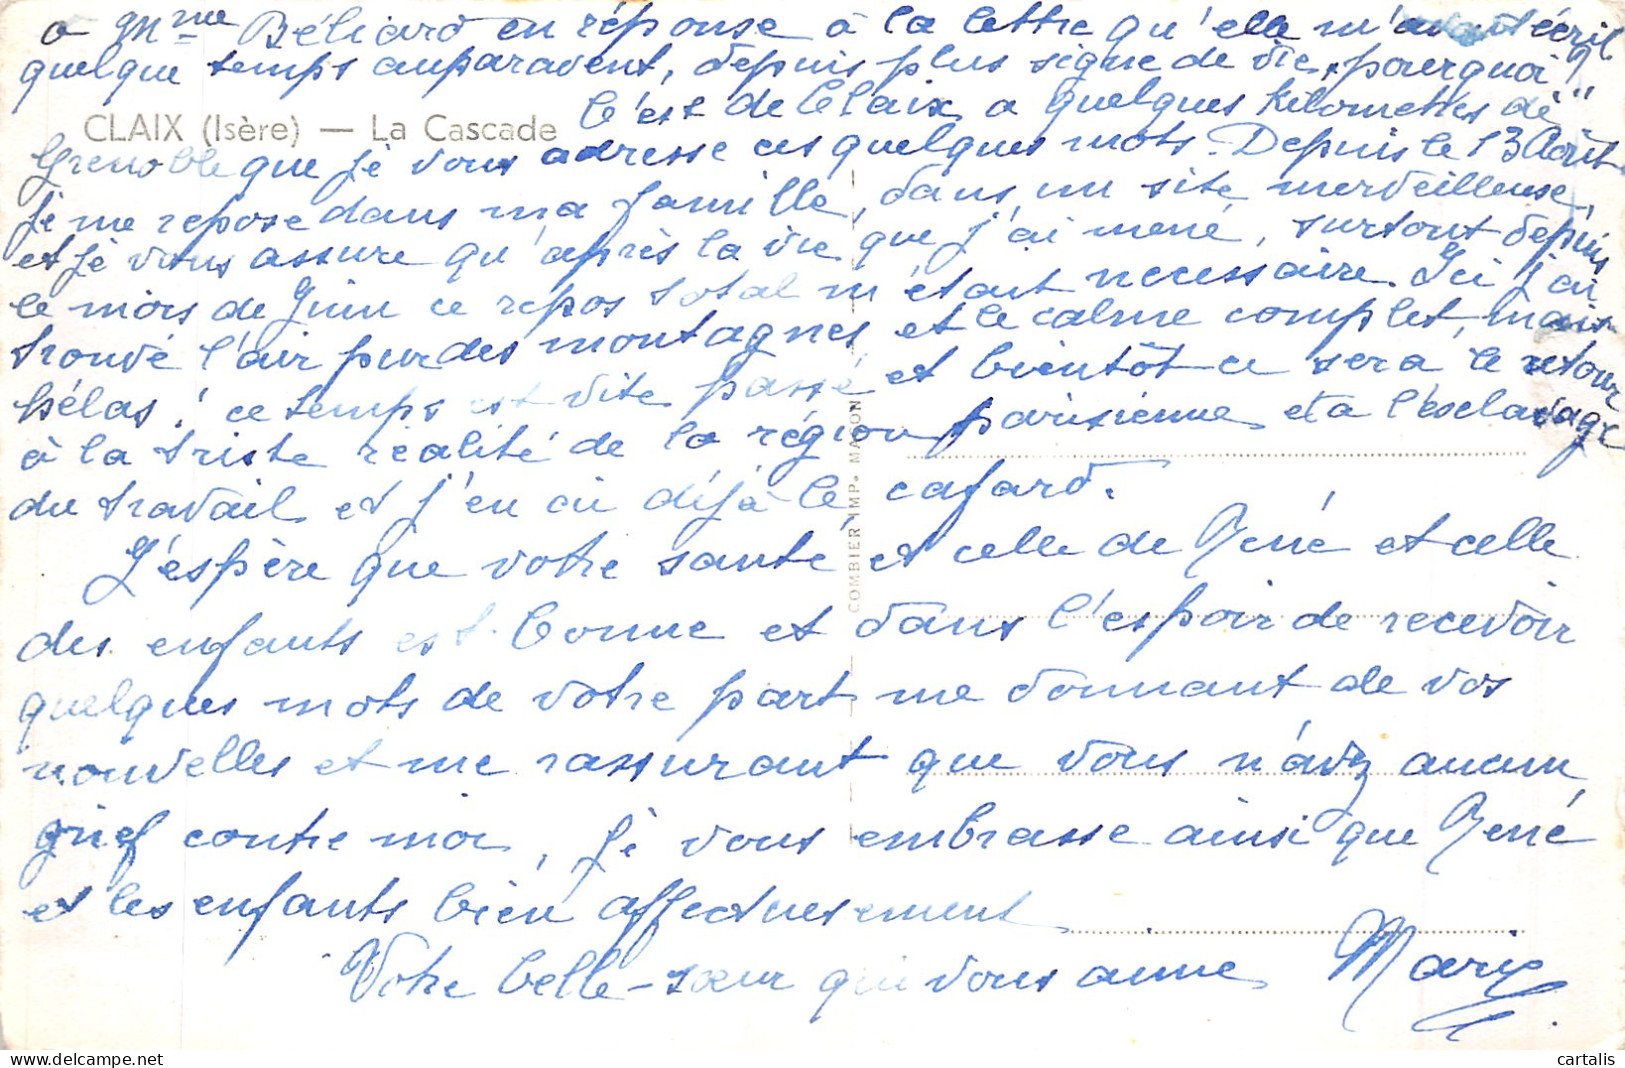 a Mme Béliard en réponse à la lettre qu'elle m'avait écrit
quelque temps auparavent, depuis plus signe de vie, pourquoi ?
CLAIX (Isère) — La Cascade
C'est de Claix a quelques kilomettes de
Grenoble que je vous adresse ces quelques mots. Depuis le 13 Août
je me repose dans ma famille, dans un site merveilleuse,
et je vous assure qu'après la vie que j'ai mené, surtout depuis
le mois de Juin ce repos total m'était necessaire. Ici j'ai
trouvé l'air pur des montagnes et le calme complet, mais
hélas ! ce temps est vite passé et bientôt ce sera le retour
à la triste réalité de la région parisienne et a l'esclavage
du travail et j'en ai déjà le cafard.
J'espère que votre santé et celle de René et celle
des enfants est bonne et dans l'espoir de recevoir
quelques mots de votre part me donnant de vos
nouvelles et me rassurant que vous n'avez aucun
grief contre moi, je vous embrasse ainsi que René
et les enfants bien affectueusement
Votre belle-sœur qui vous aime Marie
COMBIER IMP. MACON
cartalis